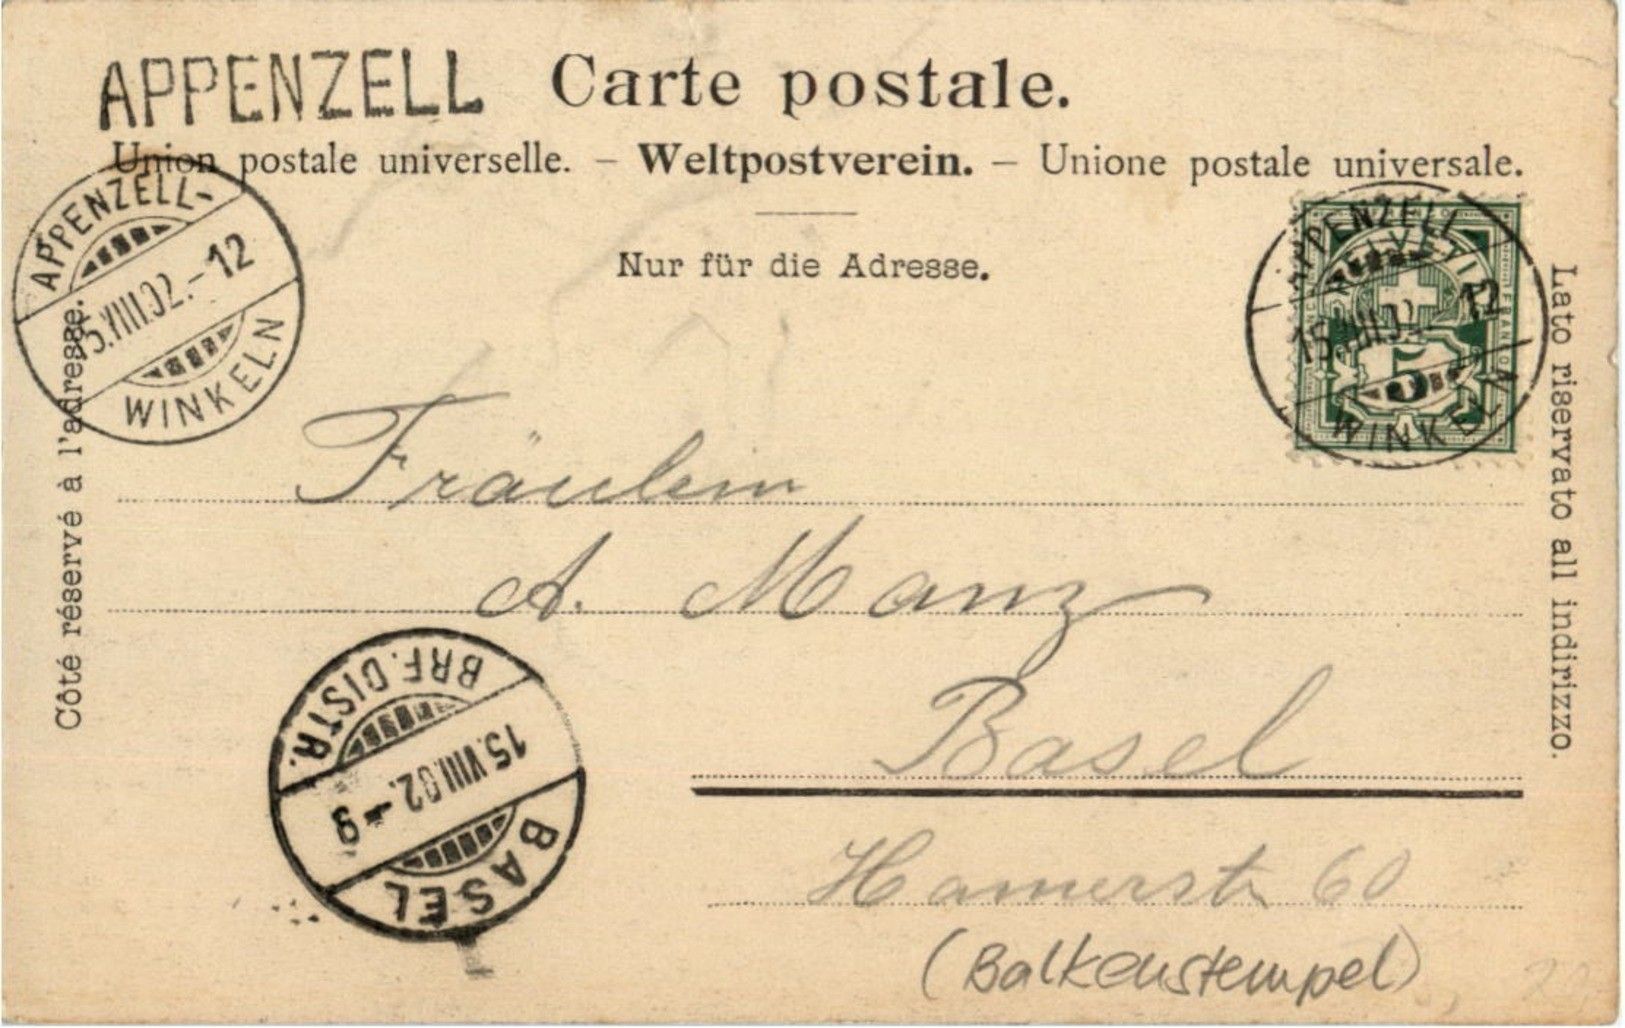 APPENZELL Carte postale.
Union postale universelle. – Weltpostverein. – Unione postale universale.
Nur für die Adresse.
APPENZELL-
15.VIII.02.-12
WINKELN
APPENZELL
HELVETIA
FRANCO
15.VIII.02.-12
5
WINKELN
Côté réservé à l'adresse.
Lato riservato all indirizzo.
Fräulein
A. Manz
Basel
60
BRF. DISTR.
15.VIII.02.-9
BASEL
(Balkenstempel)